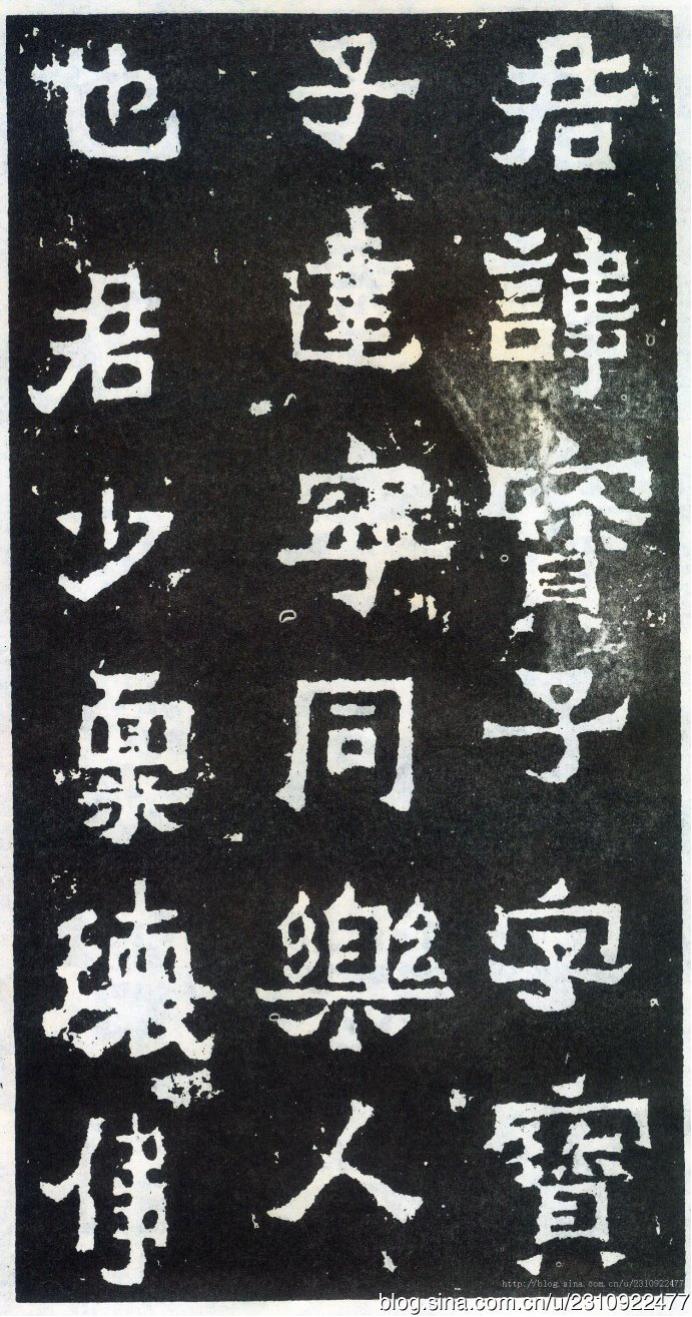 君諱寶子字寶
子建寧同樂人
也君少稟瓌偉
http://blog.sina.com.cn/u/2310922477
blog.sina.com.cn/u/2310922477